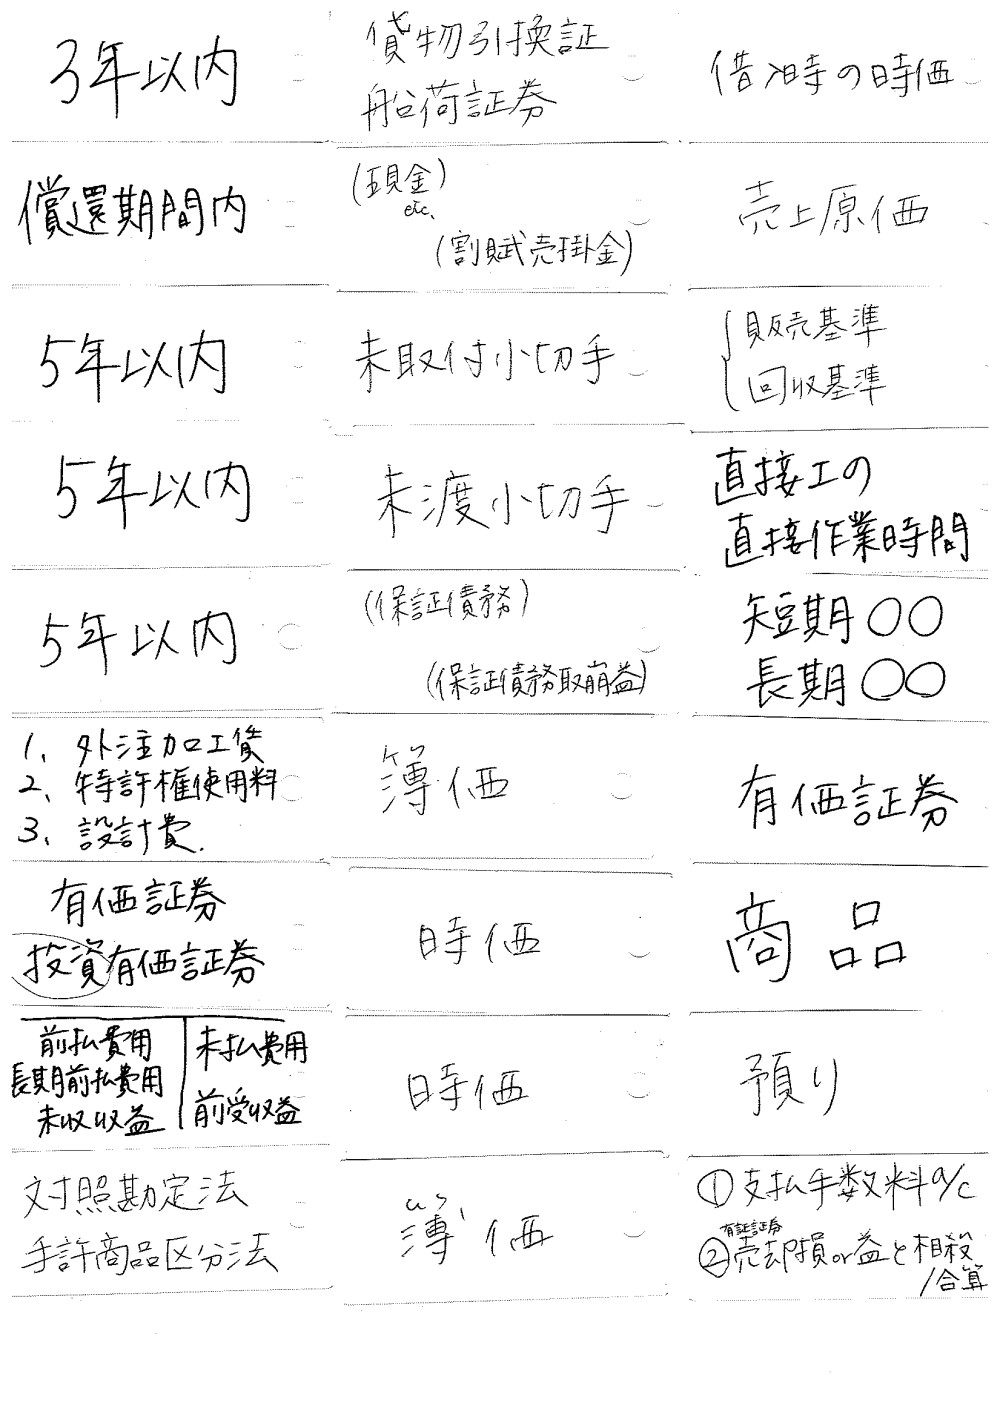 3年以内
償還期間内
5年以内
5年以内
5年以内
1、外注加工賃
2、特許権使用料
3、設計費.
有価証券
投資有価証券
前払費用
長期前払費用
未収収益
未払費用
前受収益
対照勘定法
手許商品区分法
貨物引換証
船荷証券
(現金)
etc.
(割賦売掛金)
未取付小切手
未渡小切手
(保証債務)
(保証債務取崩益)
簿価
時価
時価
簿価
借入時の時価
売上原価
販売基準
回収基準
直接工の
直接作業時間
短期○○
長期○○
有価証券
商品
預り
①支払手数料a/c
②売却損or益と相殺
/合算